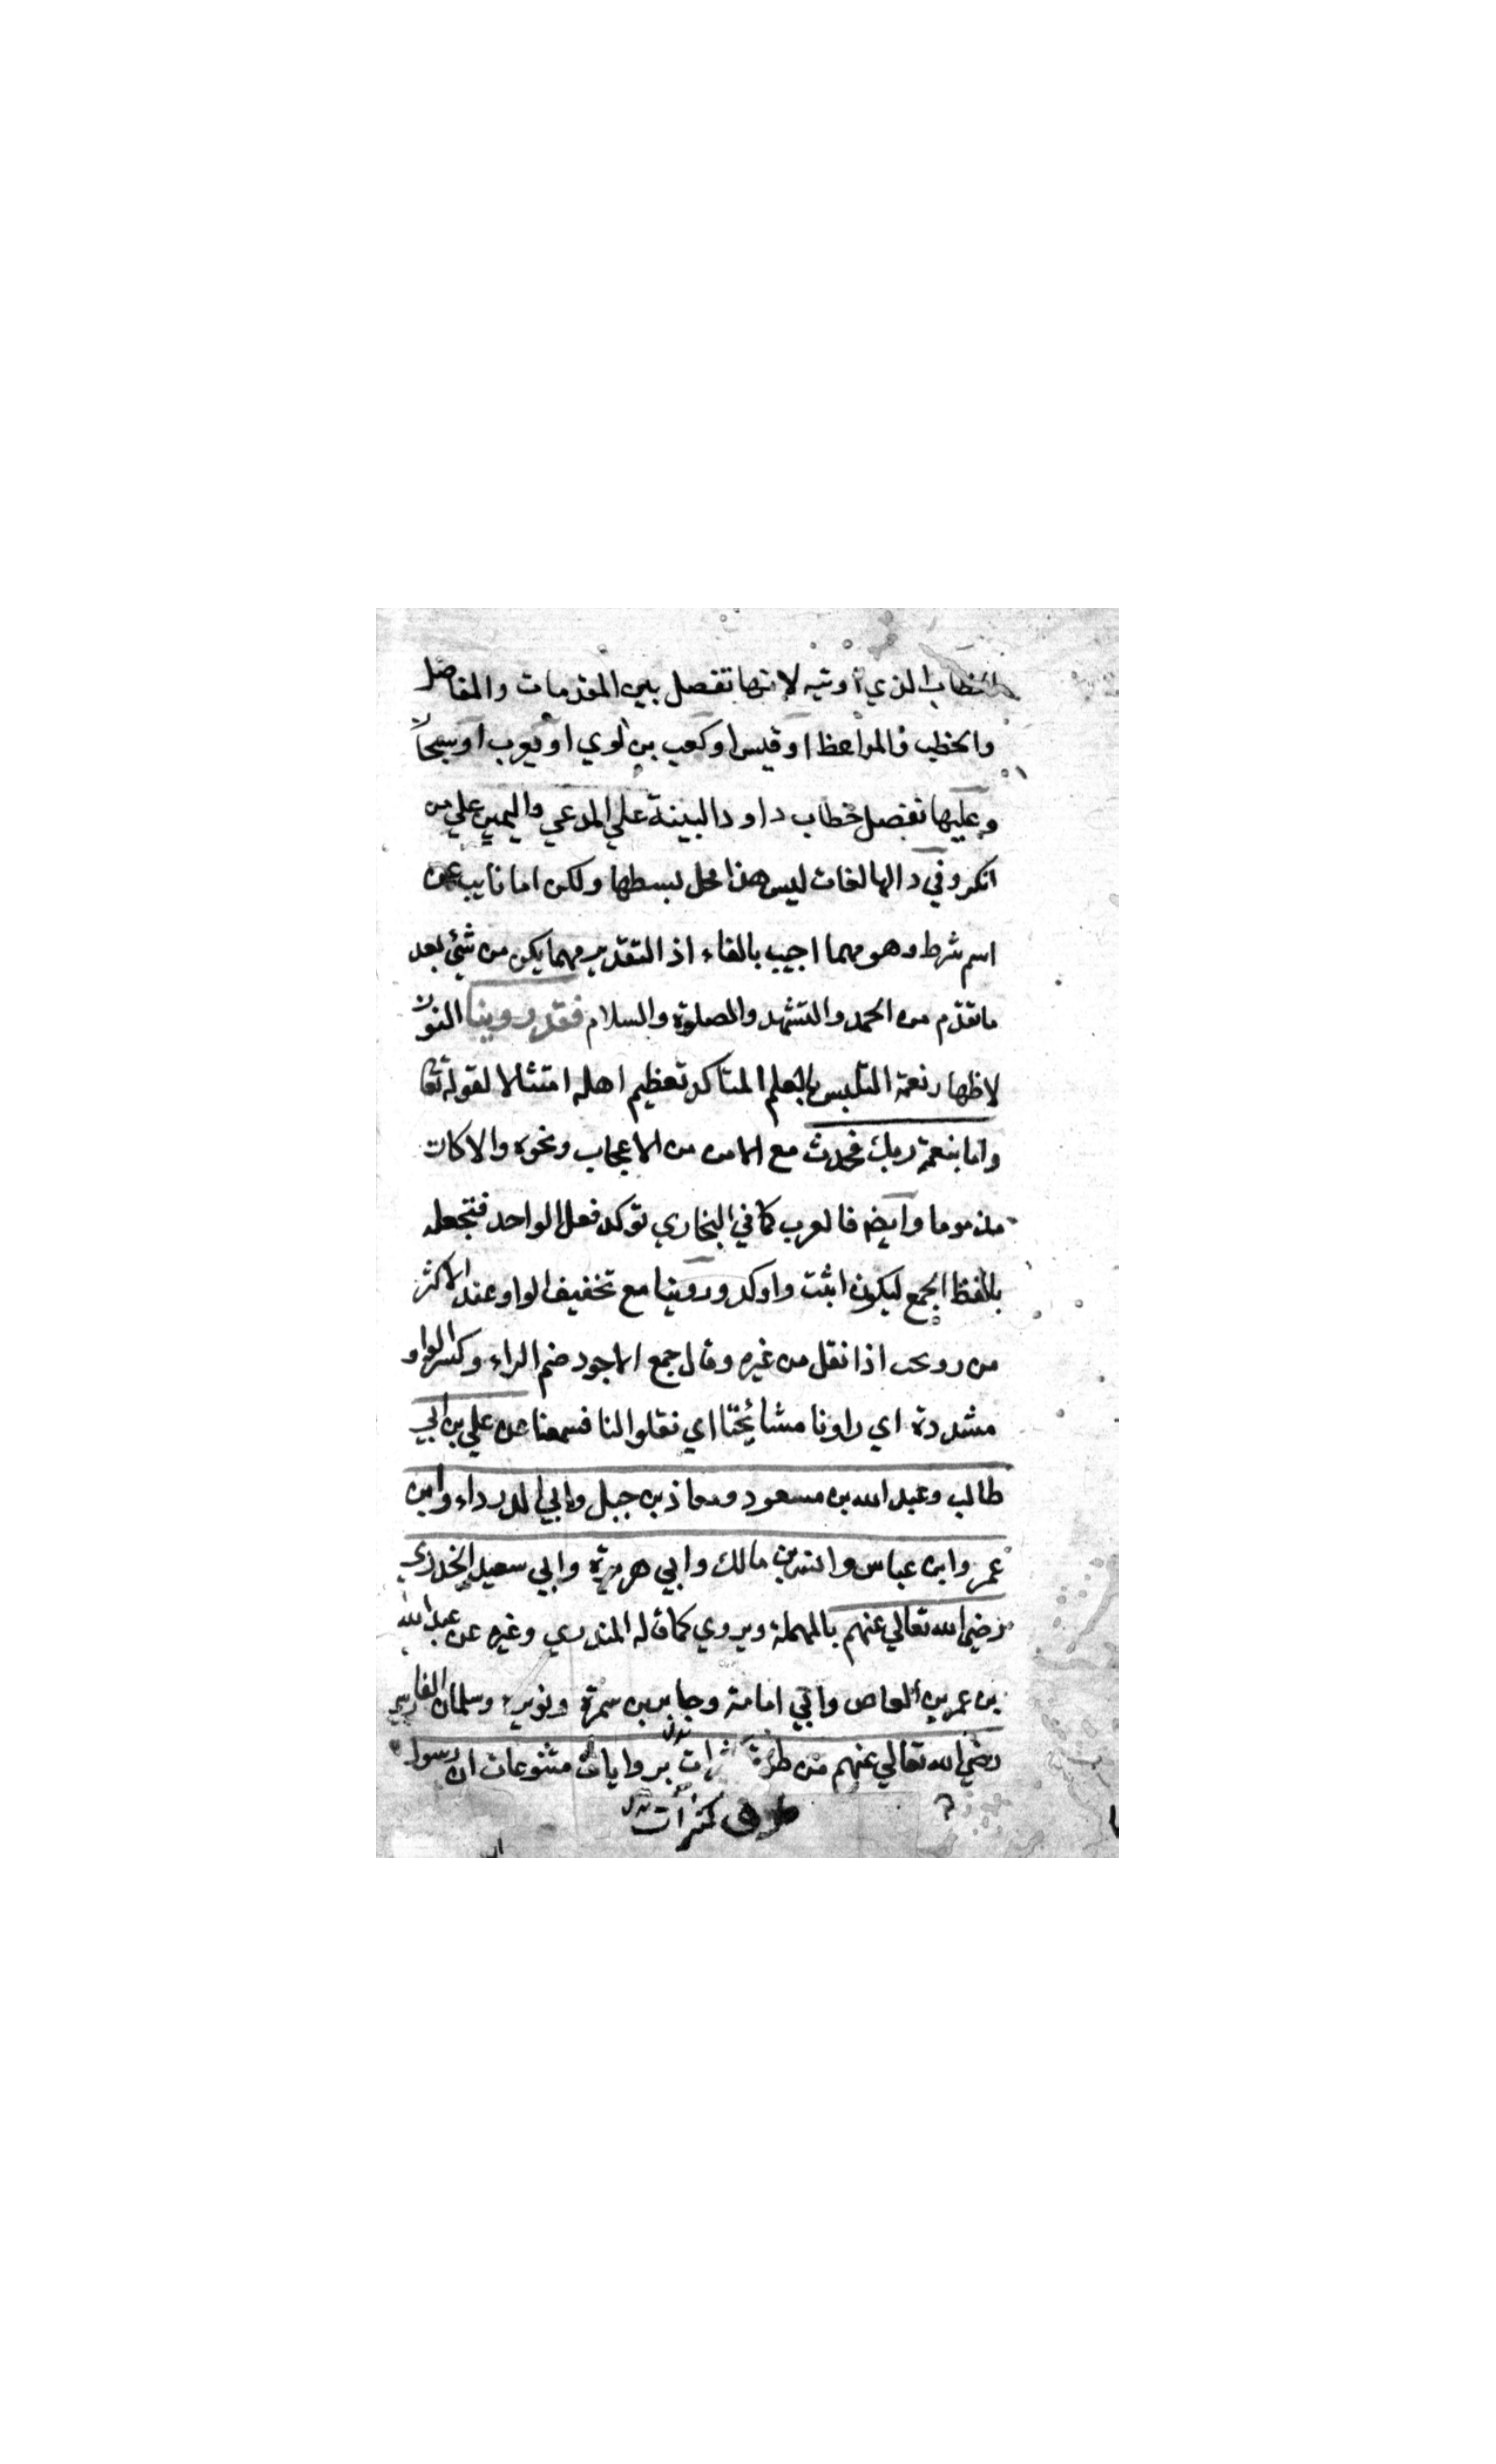 الخطاب الذي أوتيه لانها تفصل بين المقدمات والمقاصد
والخطب والمواعظ او قيس او كعب بن لوي او يعرب او سحبان
وعليها ففصل خطاب داود البينة علي المدعي واليمين علي من
انكر وفي دالها لغات ليس هذا محل بسطها ولكن اما نايب عن
اسم شرط وهو مهما اجيب بالفاء اذ التقدير مهما يكن من شئ بعد
ماتقدم من الحمد والتشهد والصلوة والسلام فقد روينا النون
لاظهار نعمة التلبس بالعلم المتاكد تعظيم اهله امتثالا لقوله تعا
واما بنعمة ربك فحدث مع الامن من الاعجاب ونحوه والا كان
مذموما وايضا فالعرب كما في البخاري توكد فعل الواحد فتجعله
بلفظ الجمع ليكون اثبت واوكد وروينا مع تخفيف الواو عند الاكثر
من روي اذا نقل من غيره وقال جمع الاجود ضم الراء وكسر الواو
مشددة اي راونا مشائخنا اي نقلوا لنا فسمعنا عن علي بن ابي
طالب وعبد الله بن مسعود ومعاذ بن جبل وابي الدرداء وابن
عمر وابن عباس وانس بن مالك وابي هريرة وابي سعيد الخدري
رضي الله تعالي عنهم بالمهملة ويروي كما قاله المنذري وغيره عن عبد الله
بن عمر بن العاص وابي امامة وجابر بن سمرة ونويرة وسلمان الفارسي
رضي الله تعالي عنهم من طرق كثيرات بروايات متنوعات ان رسول
طرق كثيرات